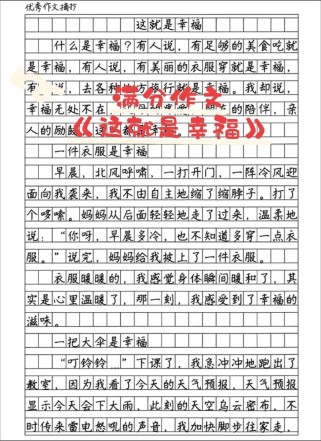 优秀作文摘抄
这就是幸福
什么是幸福？有人说，有足够的美食吃就
是幸福，有人说，有美丽的衣服穿就是幸福，
有 说，去各种 方旅行就是幸福。我却说，
幸福无处不在 的陪伴，亲
人的鼓励 都是幸福
满分作文
《这就是幸福》
一件衣服是幸福
早晨，北风呼啸，一打开门，一阵冷风迎
面向我袭来，我不由自主地缩了缩脖子。打了
个哆嗦。妈妈从后面轻轻地走了过来，温柔地
说：“你呀，早晨多冷，也不知道多穿一点衣
服。”说完，妈妈给我披上了一件衣服。
衣服暖暖的，我感觉身体瞬间暖和了，其
实是心里温暖了，那一刻，我感受到了幸福的
滋味。
一把大伞是幸福
“叮铃铃…”下课了，我急冲冲地跑出了
教室，因为我看了今天的天气预报，天气预报
显示今天会下大雨，此刻的天空乌云密布，不
时传来雷电怒吼的声音，我加快脚步往家走，